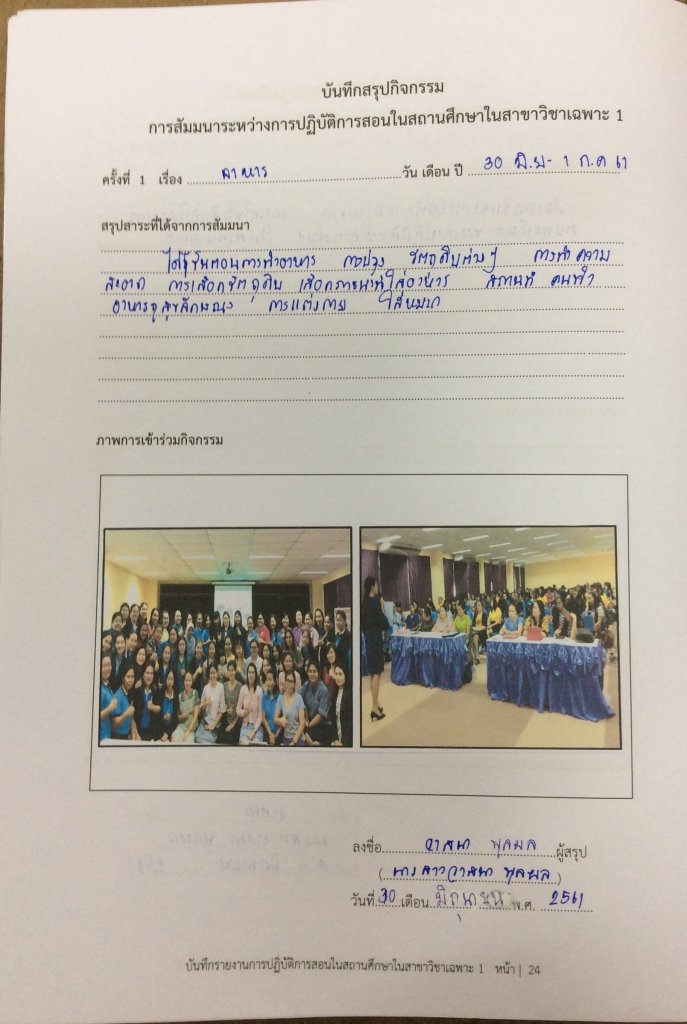 บันทึกสรุปกิจกรรม
การสัมมนาระหว่างการปฏิบัติการสอนในสถานศึกษาในสาขาวิชาเฉพาะ 1
ครั้งที่ 1 เรื่อง อาหาร วัน เดือน ปี 30 มิ.ย- 1 ก.ค 61
สรุปสาระที่ได้จากการสัมมนา
ได้รู้ขั้นตอนการทำอาหาร การปรุง วัตถุดิบต่างๆ การทำความ
สะอาด การเลือกวัตถุดิบ เลือกภาชนะที่ใส่อาหาร สถานที่ คนทำ
อาหารถูกสุขลักษณะ การแต่งกาย ใส่หมวก
ภาพการเข้าร่วมกิจกรรม
ลงชื่อ วาสนา พูลผล ผู้สรุป
(นางสาววาสนา พูลผล)
วันที่ 30 เดือน มิถุนายน พ.ศ. 2561
บันทึกรายงานการปฏิบัติการสอนในสถานศึกษาในสาขาวิชาเฉพาะ 1 หน้า | 24